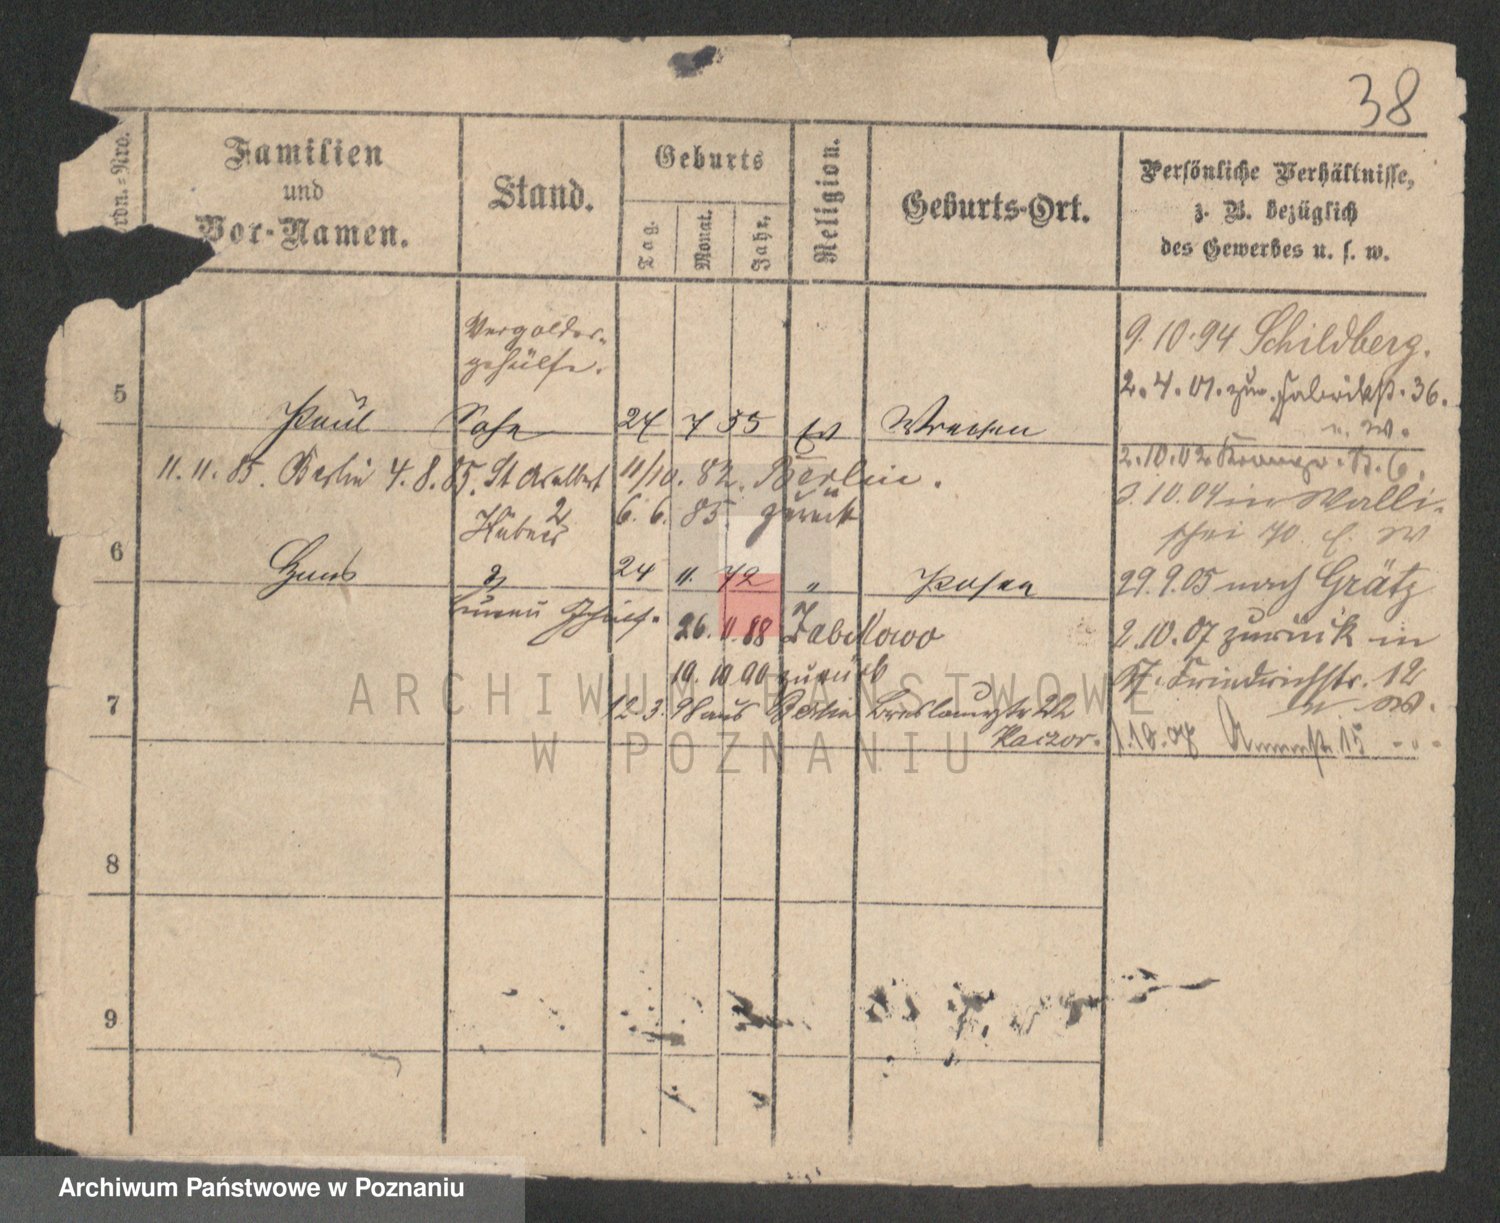 38
Ordn.=Nro.
Familien
und
Vor-Namen.
Stand.
Geburts
Tag.
Monat.
Jahr.
Religion.
Geburts-Ort.
Persönliche Verhältnisse,
z. B. bezüglich
des Gewerbes u. s. w.
Vergolder-
gehülfe.
9.10.94 Schildberg.
2.4.01. zur. Fabrikst. 36.
n. W.
5
Paul
Sohn
24 7 55
Ev
Wreschen
11.11.85. Berlin 4.8.85. St Adalbert 11/10. 82. Berlin.
2
6. 6. 85 zurück
2.10.02
3.10.04 in Walli-
schei 70. W
6
Hans
24 11. 72
"
Posen
29.9.05 nach Grätz
26. 11. 88 Zabikowo
2.10.07 zurück in
19.10.90 zurück
St. Friedrichstr. 12
n W.
7
12.3. 9 aus Berlin Breslauerstr 22
Kaczor.
1.10.07 15
8
9
ARCHIWUM PAŃSTWOWE
W POZNANIU
Archiwum Państwowe w Poznaniu